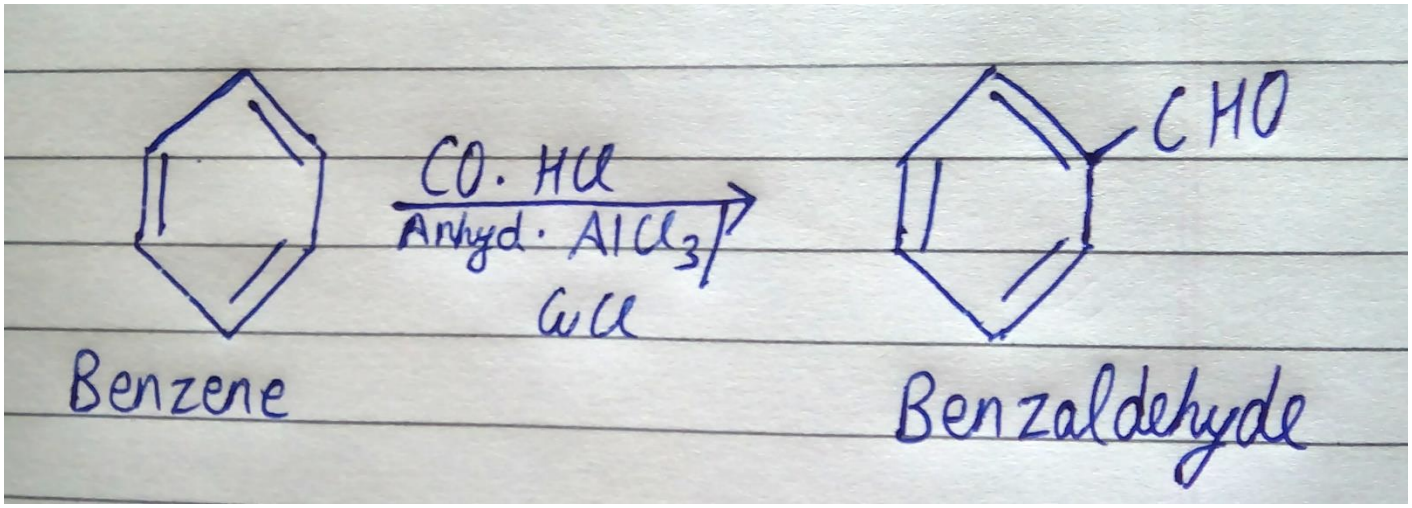 CO. HCl
CHO
Anhyd. AlCl3/
CuCl
Benzene
Benzaldehyde